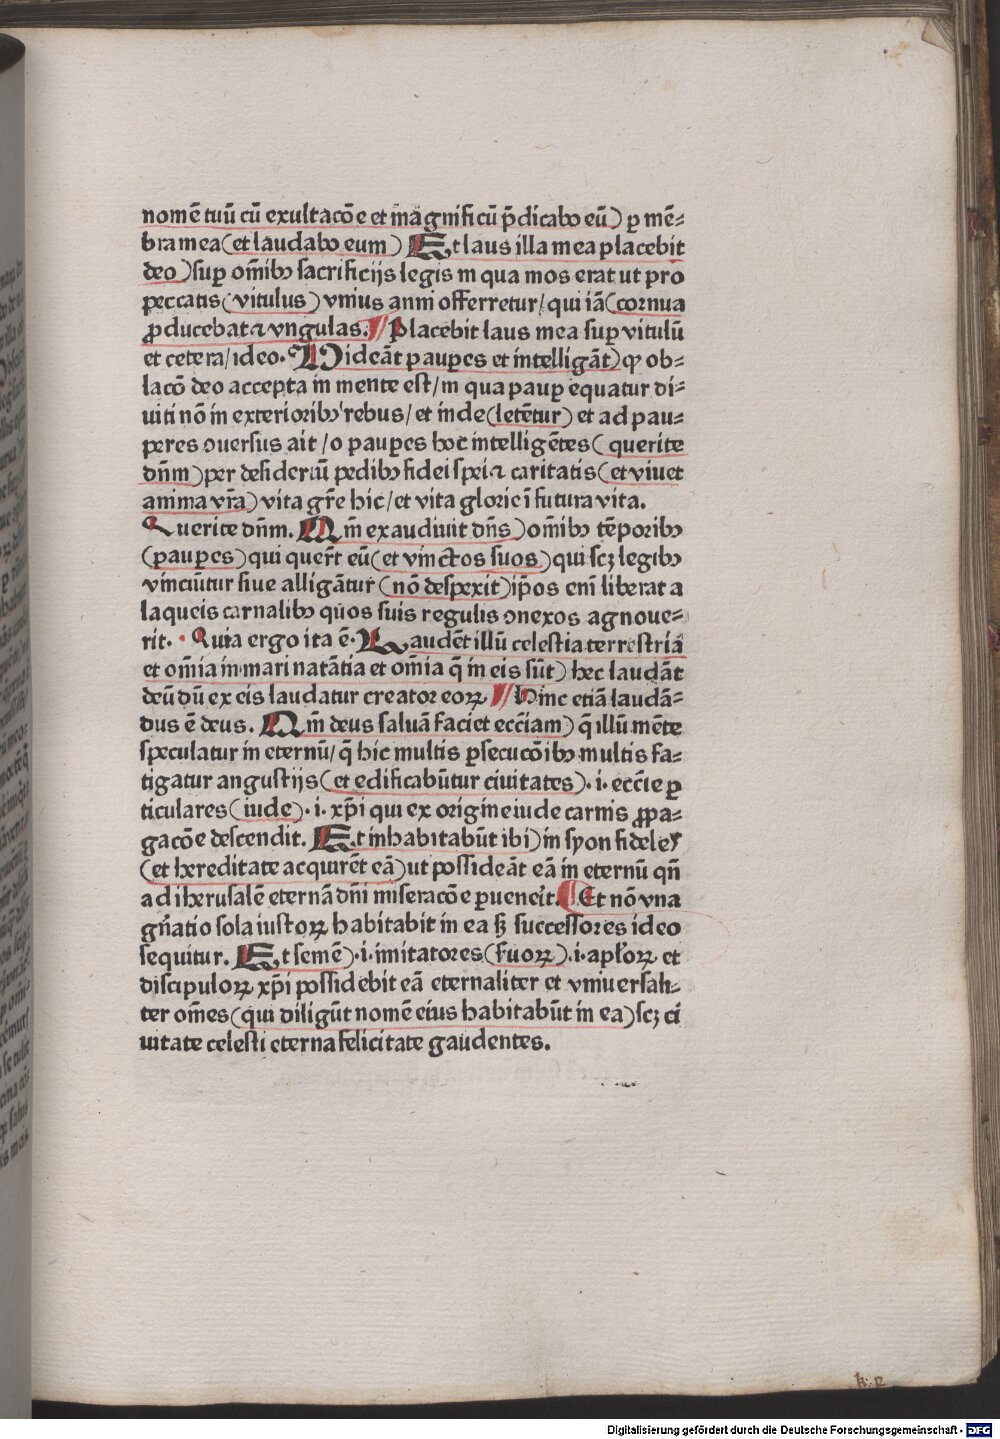 nomē tuū cū exultacōe et magnificū p̄dicabo eū) ꝑ mē⸗
bra mea (et laudabo eum) Et laus illa mea placebit
deo) suꝑ om̄ibꝫ sacrificijs legis in qua mos erat ut pro
peccatis (vitulus) vnius anni offerretur / qui iā (cornua
ꝓducebat ⁊ vngulas. Placebit laus mea suꝑ vitulū
et cetera / ideo. Videāt pauꝑes et intelligāt) ꝙ ob⸗
lacō deo accepta in mente est / in qua pauꝑ equatur di⸗
uiti nō in exterioribꝫ rebus / et inde (letētur) et ad pau⸗
peres ꝯuersus ait / o pauꝑes hoc intelligētes (querite
dn̄m) per desideriū pedibꝫ fidei spei ⁊ caritatis (et viuet
anima vr̄a) vita gr̄e hic / et vita glorie ī futura vita.
Querite dn̄m. Qm̄ exaudiuit dn̄s) om̄ibꝫ tēporibꝫ
(pauꝑes) qui quer̄t eū (et vinctos suos) qui scꝫ legibꝫ
vinciūtur siue alligātur (nō despexit) ip̄os eni liberat a
laqueis carnalibꝫ quos suis regulis ꝯnexos agnoue⸗
rit. Quia ergo ita ē. Laudēt illū celestia terrestria
et om̄ia in mari natātia et om̄ia q̄ in eis sūt) hec laudāt
deū dū ex eis laudatur creator eoꝝ. Hinc etiā laudā⸗
dus ē deus. Qm̄ deus saluā faciet ecc̄iam) q̄ illū mēte
speculatur in eternū / q̄ hic multis ꝑsecucōibꝫ multis fa⸗
tigatur angustijs (et edificabūtur ciuitates). i. ecc̄ie ꝑ
ticulares (iude). i. xp̄i qui ex origine iude carnis ꝓpa⸗
gacōe descendit. Et inhabitabūt ibi) in syon fideles
(et hereditate acquirēt eā) ut possideāt eā in eternū qn̄
ad iherusalē eternā dn̄i miseracōe ꝑuenēit. Et nō vna
gn̄atio sola iustoꝝ habitabit in ea sꝫ successores ideo
sequitur. Et semē). i. imitatores (suoꝝ). i. apl'oꝝ et
discipuloꝝ xp̄i possidebit eā eternaliter et vniuersali⸗
ter om̄es (qui diligūt nomē eius habitabūt in ea) scꝫ ci
uitate celesti eterna felicitate gaudentes.
Digitalisierung gefördert durch die Deutsche Forschungsgemeinschaft - DFG